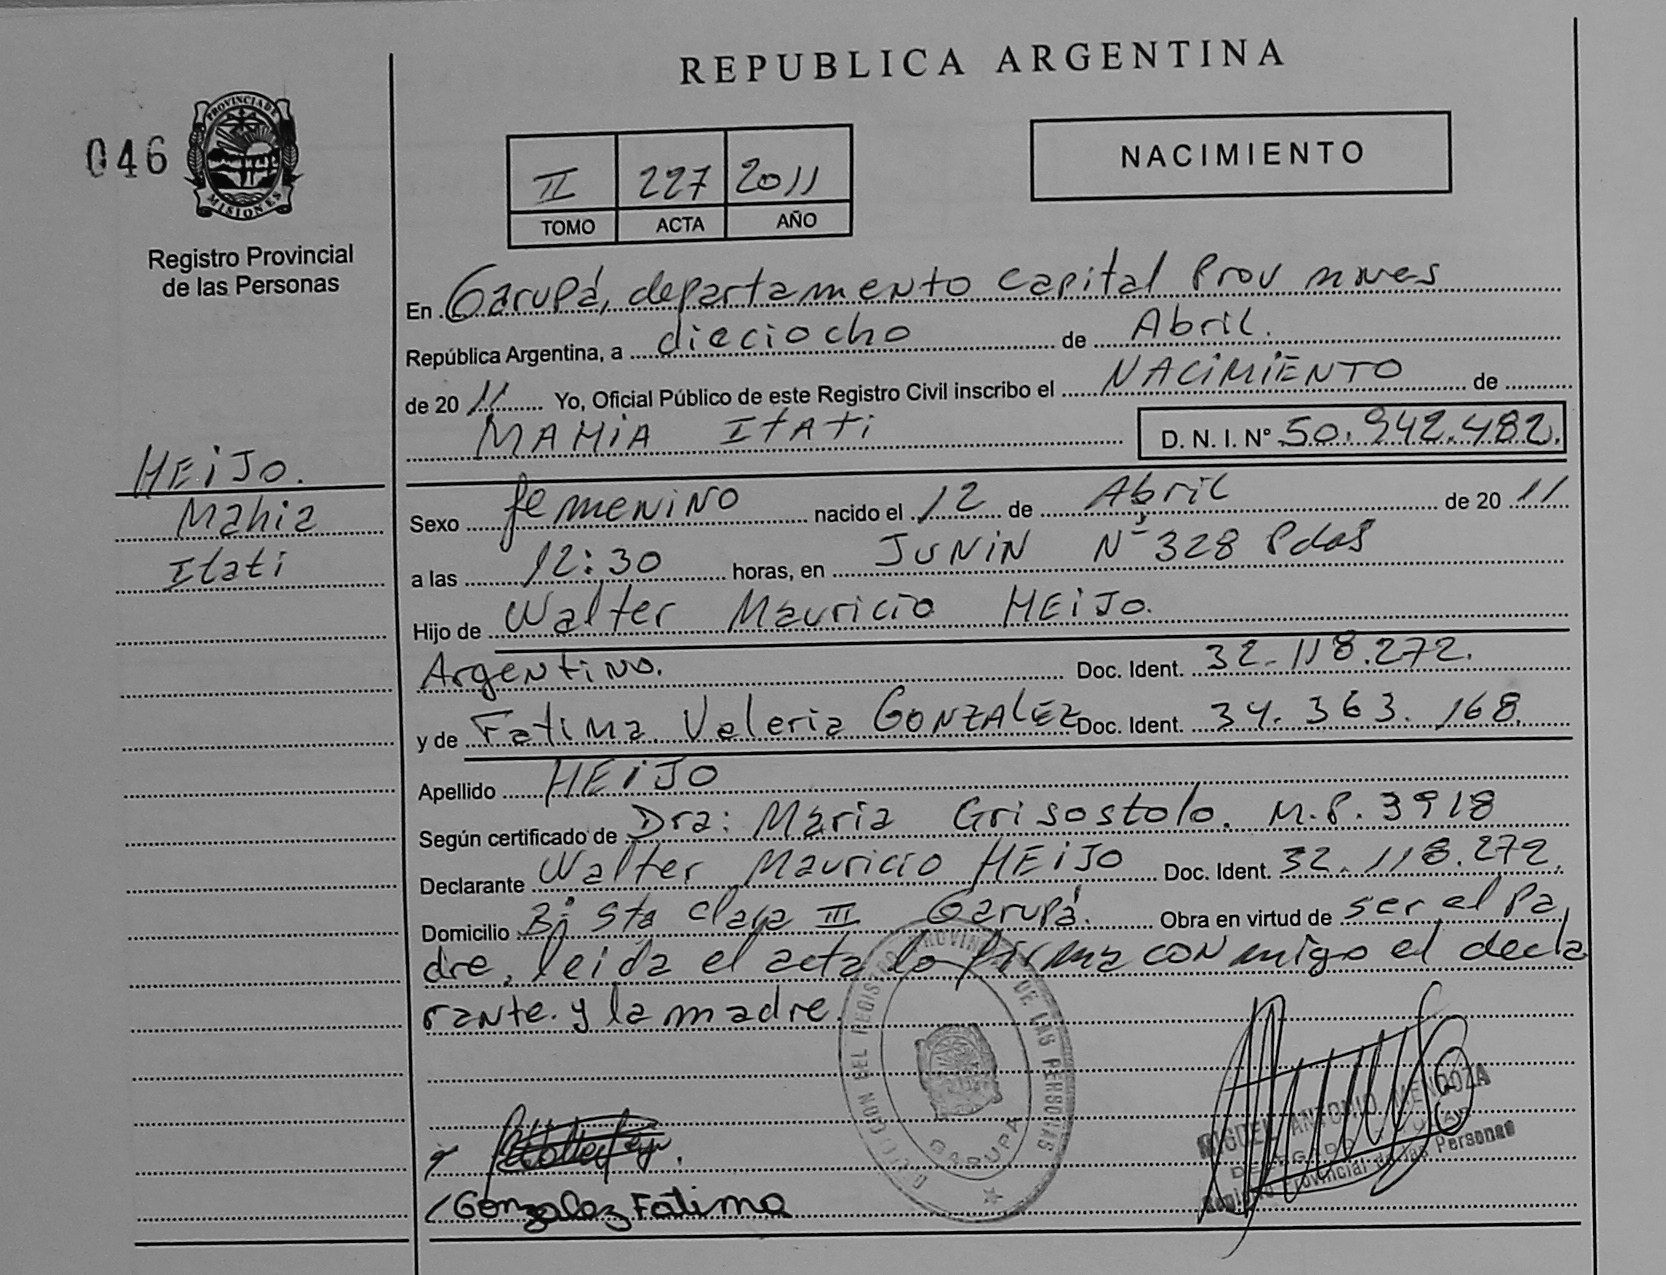 REPUBLICA ARGENTINA
046
PROVINCIA DE
MISIONES
Registro Provincial
de las Personas
II 227 2011
TOMO ACTA AÑO
NACIMIENTO
En Garupá, departamento Capital Prov
República Argentina, a dieciocho de Abril.
de 20 11 Yo, Oficial Público de este Registro Civil inscribo el NACIMIENTO de
MAHIA ITATI D. N. I. Nº 50.942.482.
HEIJO.
Mahia
Itati
Sexo femenino nacido el 12 de Abril de 20 11
a las 12:30 horas, en JUNIN Nº 328 Pdas
Hijo de Walter Mauricio HEIJO.
Argentino. Doc. Ident. 32.118.272.
y de Fatima Valeria GONZALEZ Doc. Ident. 34.363.168.
Apellido HEIJO
Según certificado de Dra: Maria Grisostolo. M.P. 3918
Declarante Walter Mauricio HEIJO Doc. Ident. 32.118.272.
Domicilio Bº Sta Clara III Garupá. Obra en virtud de ser el pa
dre, leida el acta la firma conmigo el decla
rante. y la madre.
PROVINCIAL DE LAS PERSONAS
GARUPA
MIGUEL ANTONIO MENDOZA
DELEGADO TITULAR
Registro Provincial de las Personas
Gonzalez Fatima